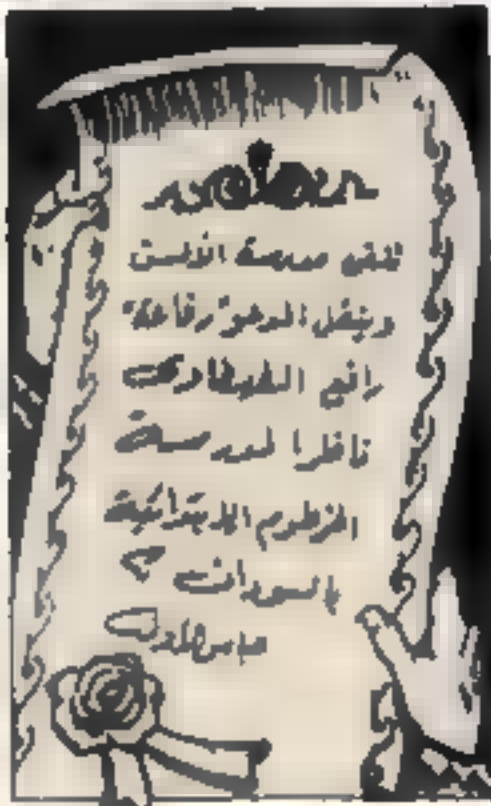 تلغى مدرسة الألسن
وينقل المدعو "رفاعة"
رافع الطهطاوى
ناظرا لمدرسة
الخرطوم الابتدائية
بالسودان
عباس الأول